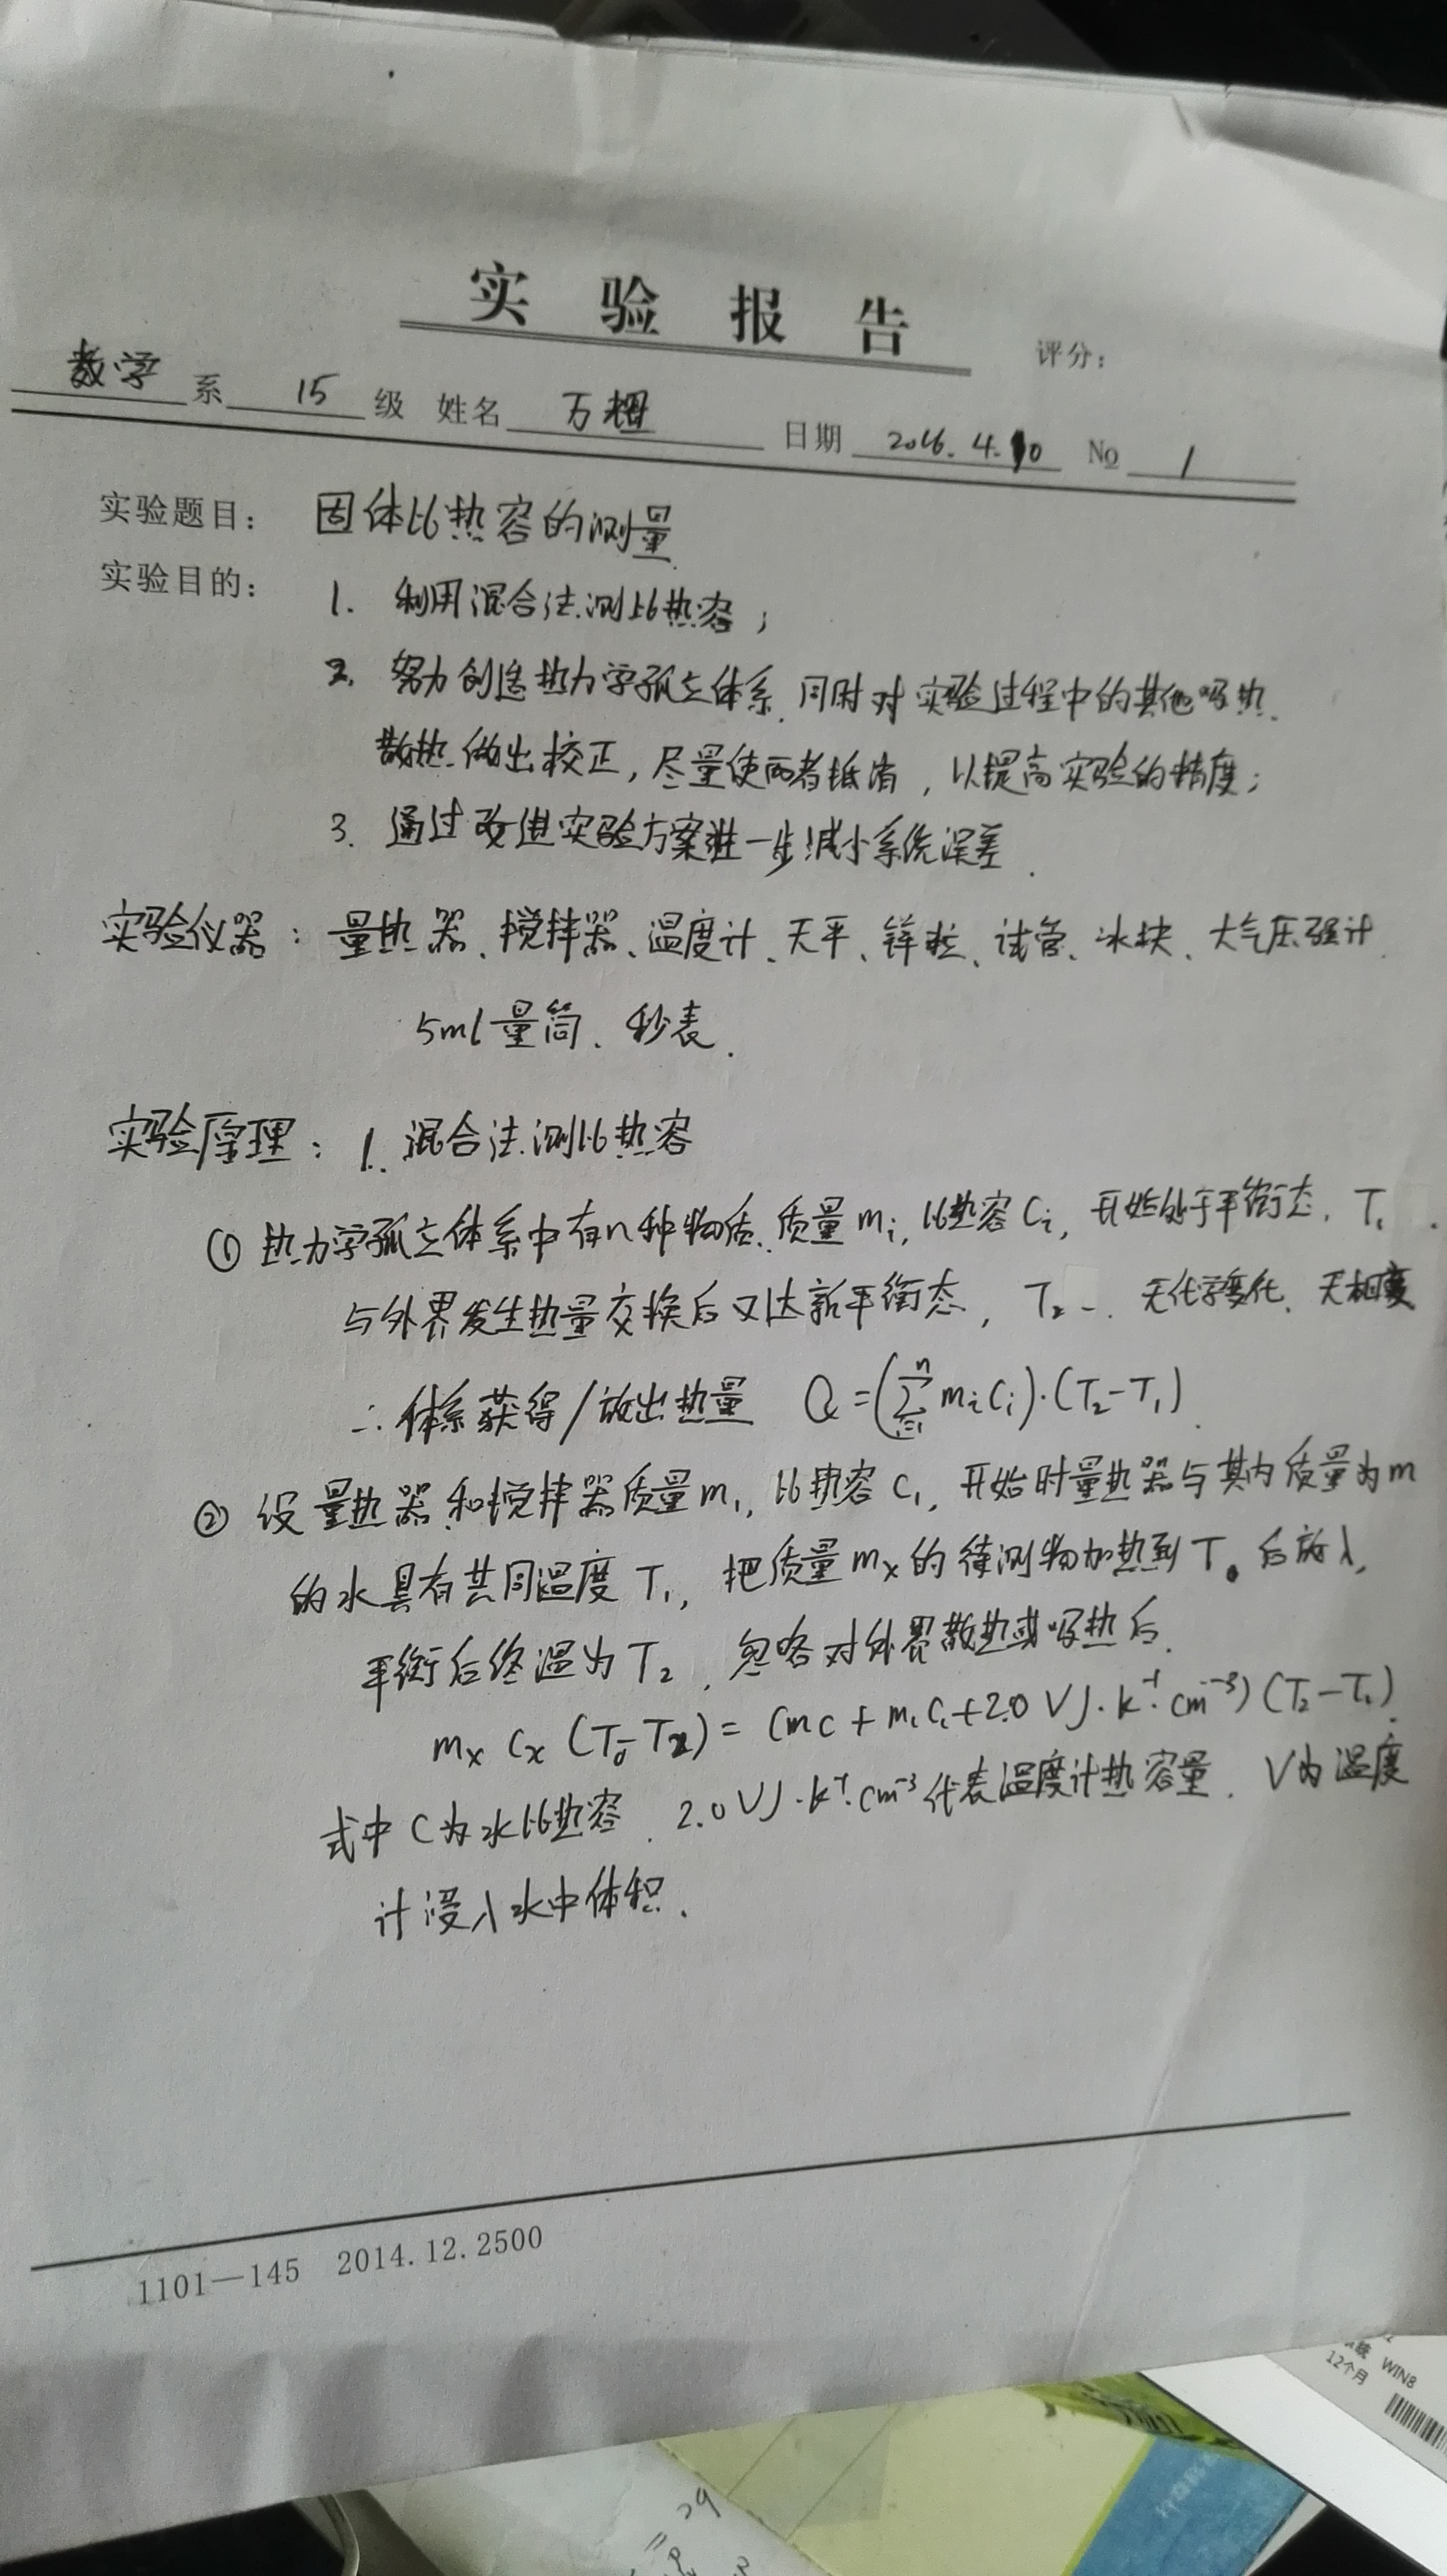 实 验 报 告
评分:
数学 系 15 级 姓名 万 日期 2016.4.10 № 1
实验题目: 固体比热容的测量
实验目的: 1. 利用混合法测比热容;
2. 努力创造热力学孤立体系,同时对实验过程中的其他吸热、
散热做出校正,尽量使两者抵消,以提高实验的精度;
3. 通过改进实验方案进一步减小系统误差.
实验仪器: 量热器、搅拌器、温度计、天平、锌粒、试管、冰块、大气压强计、
5ml量筒、秒表.
实验原理: 1. 混合法测比热容
① 热力学孤立体系中有n种物质,质量mᵢ,比热容Cᵢ,开始处于平衡态,T₁.
与外界发生热量交换后又达新平衡态,T₂-、无化学变化、无相变
∴体系获得/放出热量 Q=(∑ⁿᵢ₌₁ mᵢCᵢ)·(T₂-T₁).
② 设量热器和搅拌器质量m₁,比热容C₁,开始时量热器与其内质量为m
的水具有共同温度T₁,把质量mₓ的待测物加热到T₀后放入,
平衡后终温为T₂,忽略对外界散热或吸热后,
mₓ Cₓ (T₀-T₂)=(mc+m₁C₁+2.0VJ·k⁻¹·cm⁻³)(T₂-T₁).
式中C为水比热容,2.0VJ·k⁻¹·cm⁻³代表温度计热容量,V为温度
计浸入水中体积.
1101—145 2014.12.2500
WIN8
12个月
29